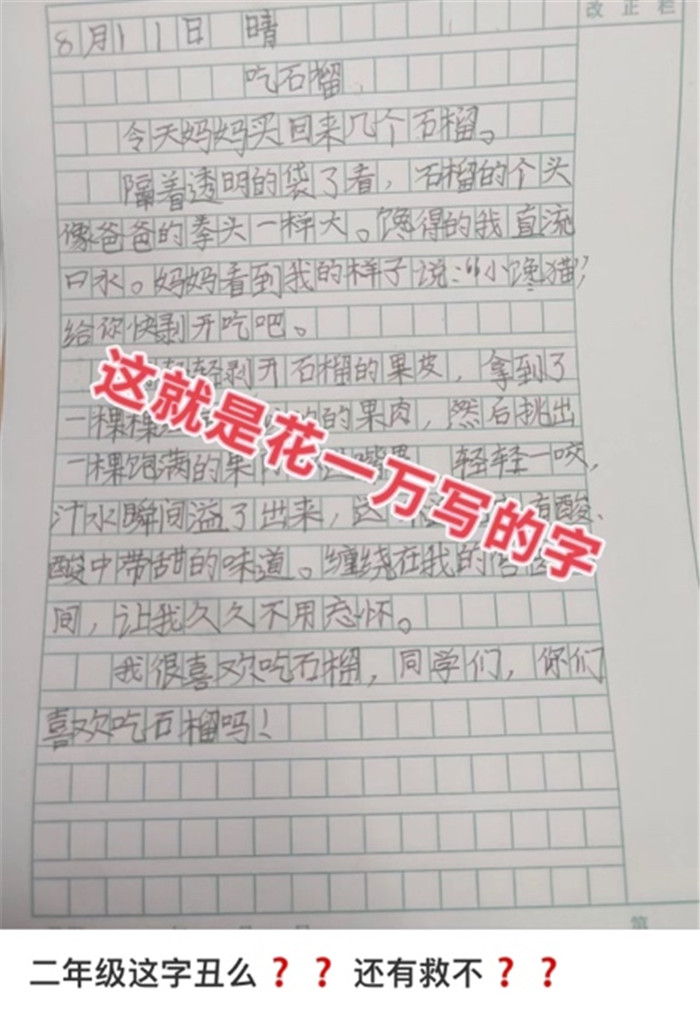 改正栏
8月11日 晴
吃石榴
今天妈妈买回来几个石榴。
隔着透明的袋了看，石榴的个头
像爸爸的拳头一样大。馋得的我直流
口水。妈妈看到我的样子说：“小馋猫”，
给你快剥开吃吧。
轻剥开石榴的果皮，拿到了
一棵棵的果肉，然后挑出
一棵饱满的果轻轻一咬，
汁水瞬间溢了出来，这有酸、
酸中带甜的味道。缠绕在我的
间，让我久久不用忘怀。
我很喜欢吃石榴，同学们，你们
喜欢吃石榴吗！
这就是花一万写的字
第
二年级这字丑么？？还有救不？？